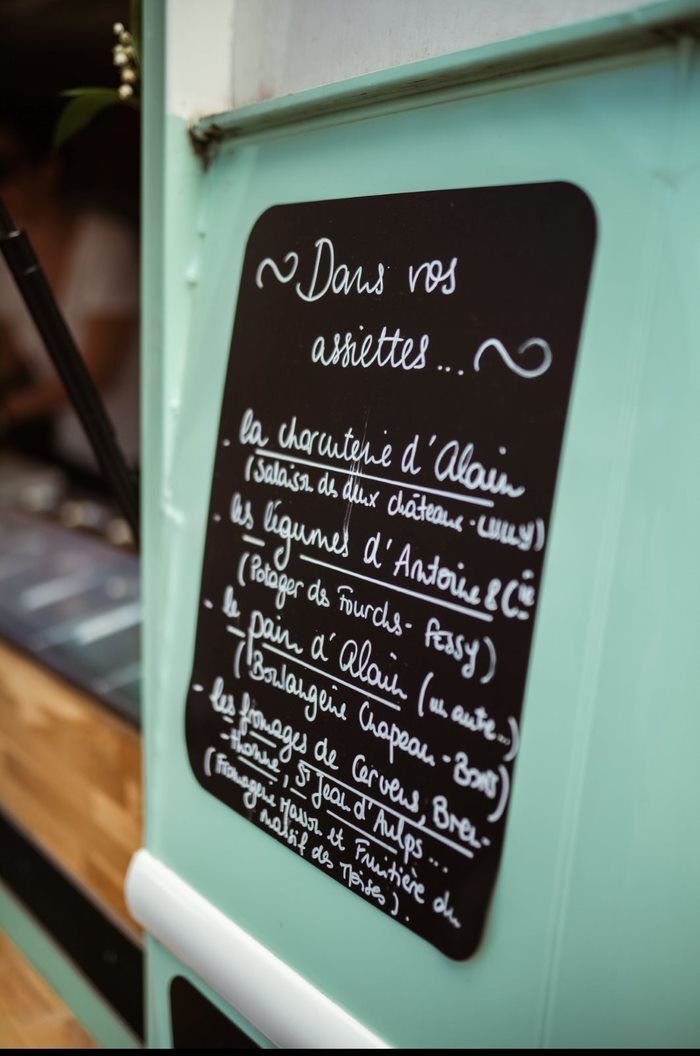 Dans vos
assiettes...
- la charcuterie d'Alain
(Salaison des deux châteaux - LULLY)
- les légumes d'Antoine & Cie
(Potager des Fourchs - FESSY)
- le pain d'Alain (un autre...)
(Boulangerie Chapeau - BONS)
- les fromages de Cervens, Bren-
-thonne, St Jean d'Aulps...
(Fromagerie Masson et Fruitière du
massif des Moises).